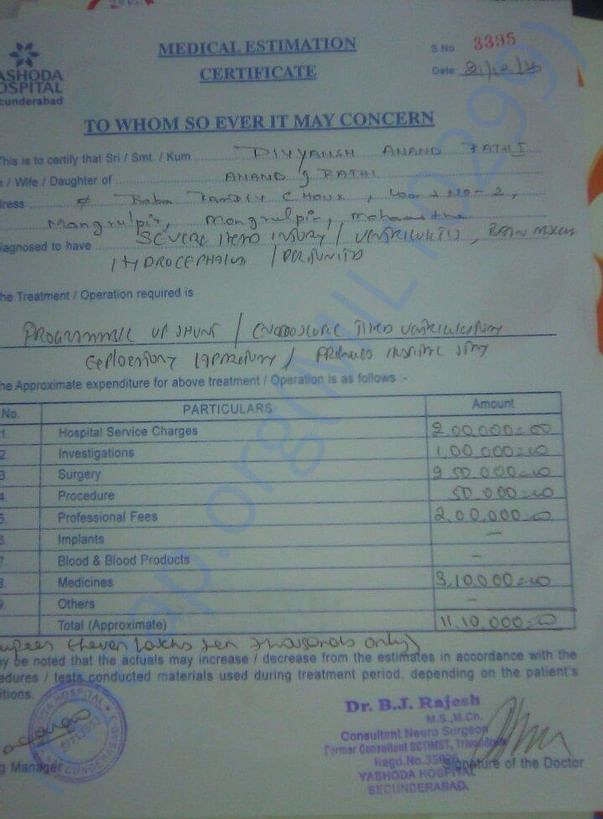 MEDICAL ESTIMATION
CERTIFICATE
S.No. 3395
Date 21/12/
ASHODA
OSPITAL
cunderabad
TO WHOM SO EVER IT MAY CONCERN
This is to certify that Sri / Smt. / Kum DIVYANSH ANAND RATHI
/ Wife / Daughter of ANAND J RATHI
ress Baba CHOUK, No-2,
Mangrulpir, Mangrulpir,
iagnosed to have SEVERE HEAD INJURY / VENTRICULITIS,
HYDROCEPHALUS / PERITONITIS
he Treatment / Operation required is
PROGRAMMABLE VP SHUNT / ENDOSCOPIC THIRD VENTRICULOSTOMY
EXPLORATORY LAPAROTOMY / PROLONGED HOSPITAL STAY
he Approximate expenditure for above treatment / Operation is as follows :-
No. PARTICULARS Amount
1 Hospital Service Charges 2,00,000=00
2 Investigations 1,00,000=00
3 Surgery 2 50,000=00
4 Procedure 50,000=00
5 Professional Fees 2,00,000=00
6 Implants –
7 Blood & Blood Products –
8. Medicines 3,10,000=00
9. Others –
Total (Approximate) 11,10,000=00
upees Eleven lakhs ten thousands only)
y be noted that the actuals may increase / decrease from the estimates in accordance with the
edures / tests conducted materials used during treatment period, depending on the patient's
itions.
Dr. B.J. Rajesh
M.S.,M.Ch.
Consultant Neuro Surgeon
Former Consultant SCTIMST,
Regd.No.
YASHODA HOSPITAL
SECUNDERABAD.
g Manager
Signature of the Doctor